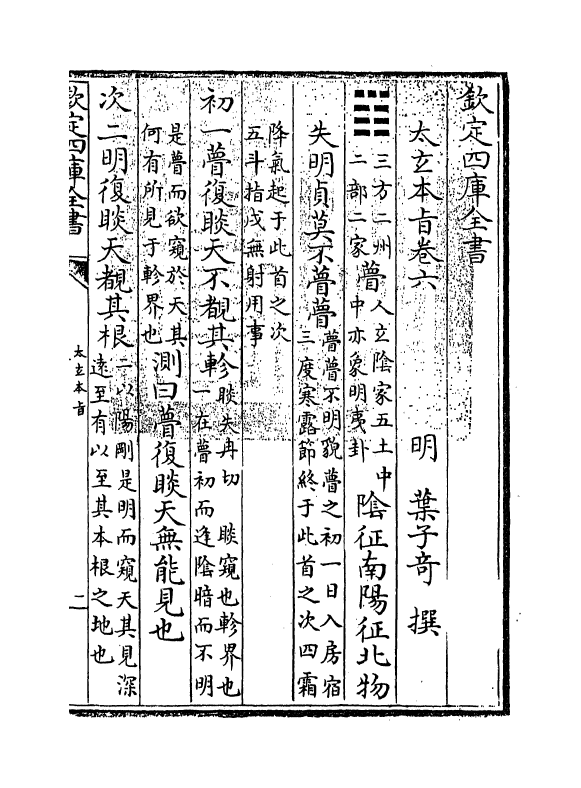 欽定四庫全書
太玄本旨卷六
明 葉子奇 撰
三方二州二部二家 瞢 人玄陰家五土中中亦象明夷卦 陰征南陽征北物
失明貞莫不瞢瞢 瞢瞢不明貌瞢之初一日入房宿三度寒露節終于此首之次四霜
降氣起于此首之次五斗指戍無射用事
初一瞢復睒天不覩其軫 睒失冉切 睒窺也軫界也一在瞢初而逢陰暗而不明
是瞢而欲窺於天其何有所見于軫界也 測曰瞢復睒天無能見也
次二明復睒天覩其根 二以陽剛是明而窺天其見深遠至有以至其本根之地也
欽定四庫全書
太玄本旨
二